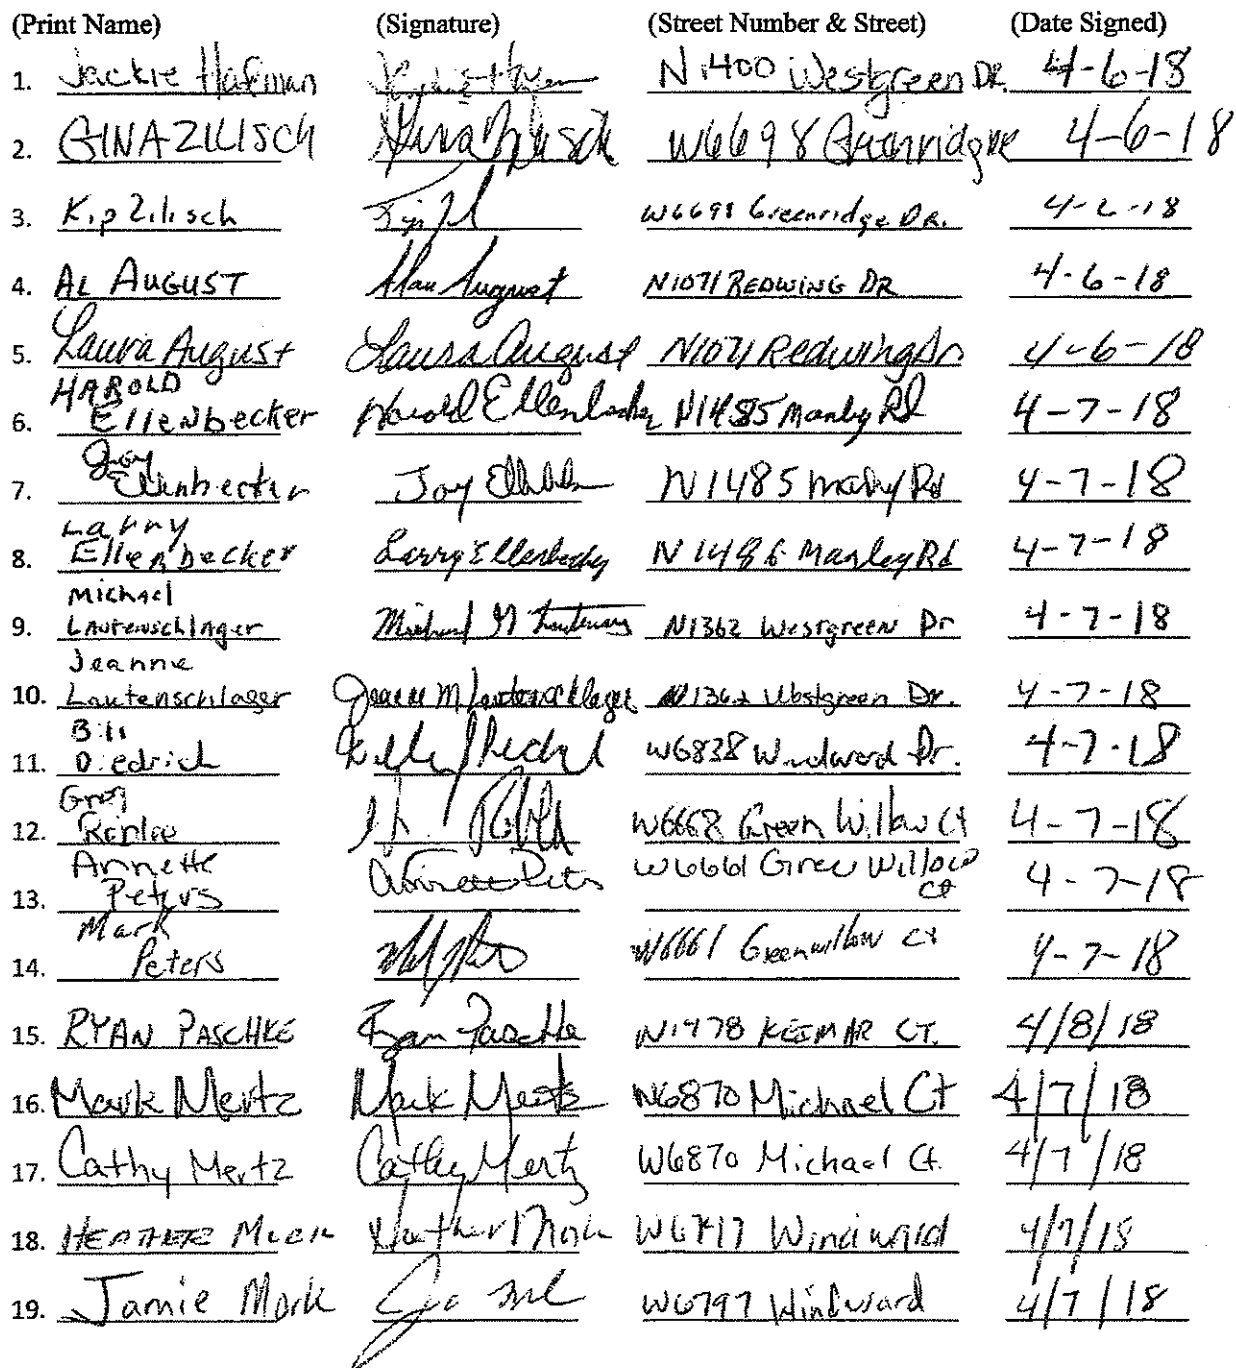 (Print Name) (Signature) (Street Number & Street) (Date Signed)
1. Jackie N1400 Westgreen DR. 4-6-18
2. GINA ZILISCH Gina Zilisch W6698 4-6-18
3. Kip Zilisch W6698 Greenridge DR. 4-6-18
4. AL AUGUST Alan August N1071 REDWING DR 4-6-18
5. Laura August Laura August N1071 Redwing Dr 4-6-18
HAROLD
6. Ellenbecker Harold Ellenbecker N1485 Manley Rd 4-7-18
Joy
7. Ellenbecker Joy N1485 Manley Rd 4-7-18
Larry
8. Ellenbecker Larry Ellenbecker N1486 Manley Rd 4-7-18
Michael
9. Lautenschlager Michael N1362 Westgreen Dr 4-7-18
Jeanne
10. Lautenschlager Jeanne M Lautenschlager N1362 Westgreen Dr. 4-7-18
Bill
11. Diedrich W6838 Windward Dr. 4-7-18
Greg
12. W6668 Green Willow Ct 4-7-18
Annette W6661 Green Willow
13. Peters Annette Peters Ct 4-7-18
Mark
14. Peters W6661 Greenwillow Ct 4-7-18
15. RYAN PASCHKE Ryan Paschke N1478 KEIMAR CT. 4/8/18
16. Mark Mertz Mark Mertz W6870 Michael Ct 4/7/18
17. Cathy Mertz Cathy Mertz W6870 Michael Ct. 4/7/18
18. HEATHER Heather W6797 Windward 4/7/18
19. Jamie Mork W6797 Windward 4/7/18